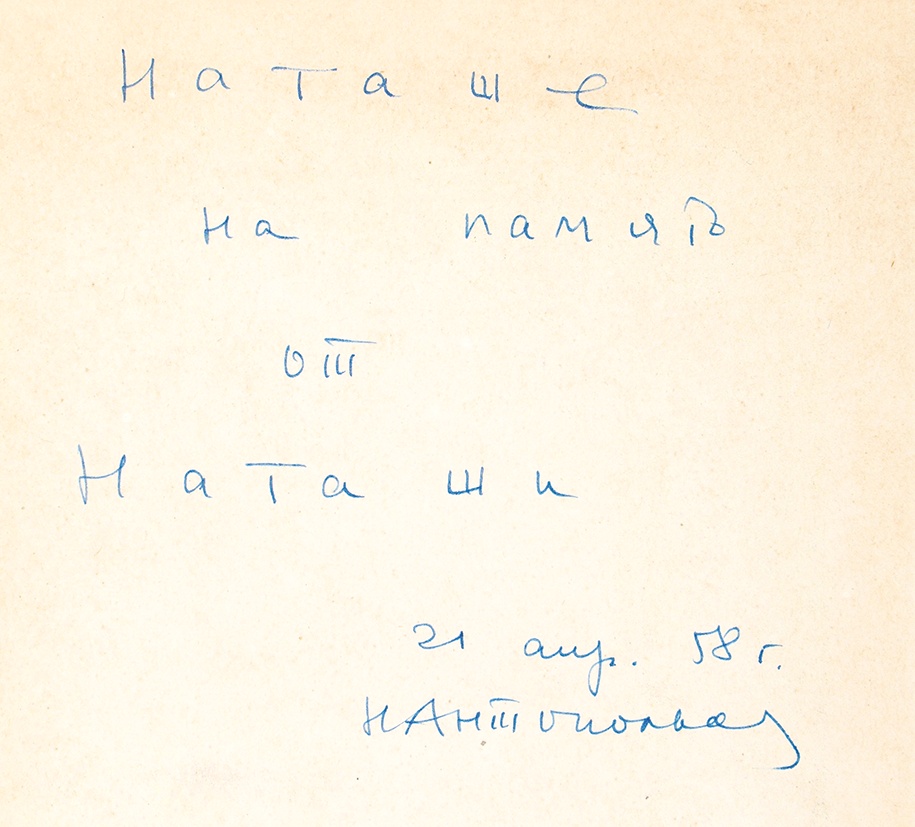 Наташе
на память
от
Наташи
21 апр. 58 г.
НАнтокольская